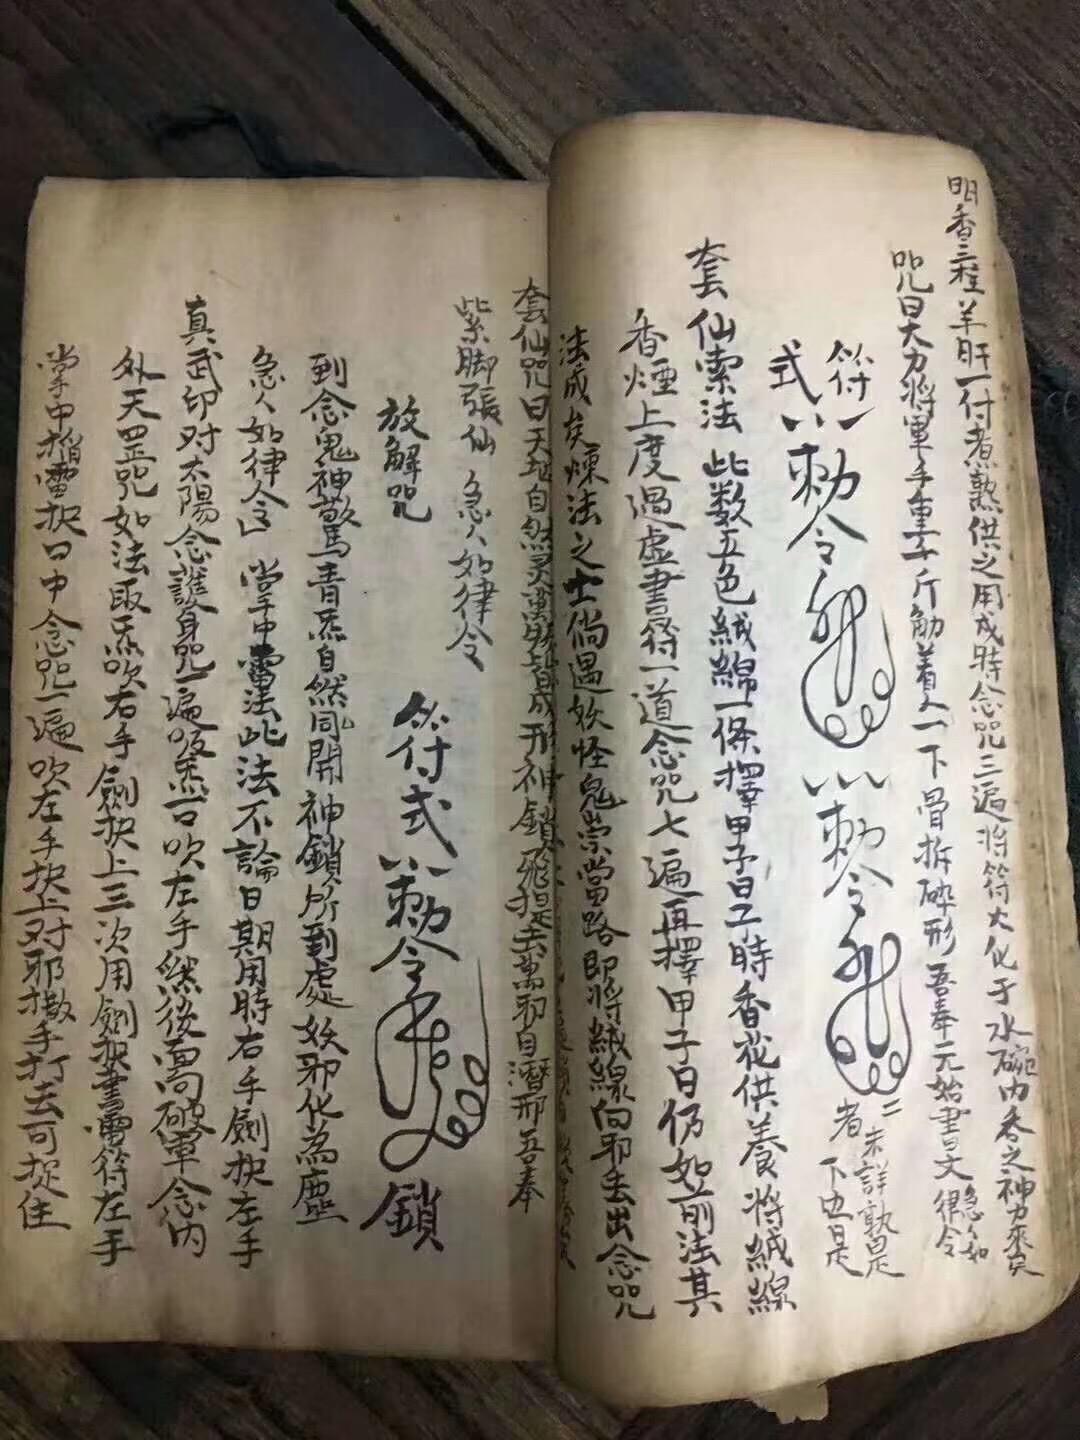 明香三柱羊肝一付煮熟供之用成時念咒三遍将符火化于水碗内吞之神力來矣
咒曰大力将軍手重千斤觔着人一下骨拆碎形吾奉元始書文急急如律令
符式 勅令
勅令
二者未詳孰是下也是
套仙索法 此数五色絨綿一條擇甲子日子時香花供養将絨線
香煙上度過虚書符一道念咒七遍再擇甲子日仍如前法其
法成矣煉法之士倘遇妖怪鬼祟當路即将絨線向邪去出念咒
套仙咒曰天地自然灵萬物皆成形神鎖飛捉去萬邪自潛形吾奉
紫脚張仙 急急如律令
放解咒 符式 勅令 鎖
到念鬼神驚青炁自然同開神鎖所到處妖邪化為塵
急急如律令 掌中雷法此法不論日期用時右手劍抉左手
真武印对太陽念護身咒一遍吸炁一口吹左手然後面向破軍念内
外天罡咒如法取炁吹右手劍抉上三次用劍抉書雷符左手
掌中掐雷抉口中念咒一遍吹左手抉上对邪撒手打去可捉住